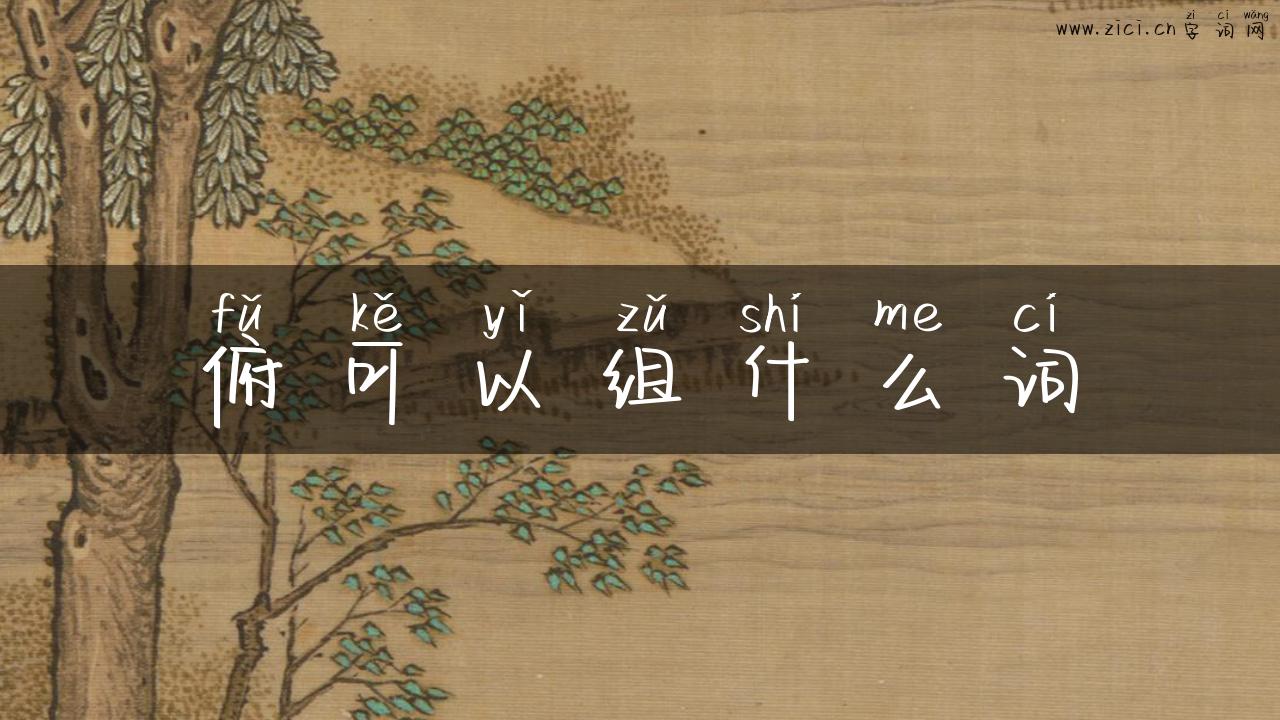 zì cí wǎng
www.zici.cn 字词网
fǔ kě yǐ zǔ shí me cí
俯可以组什么词